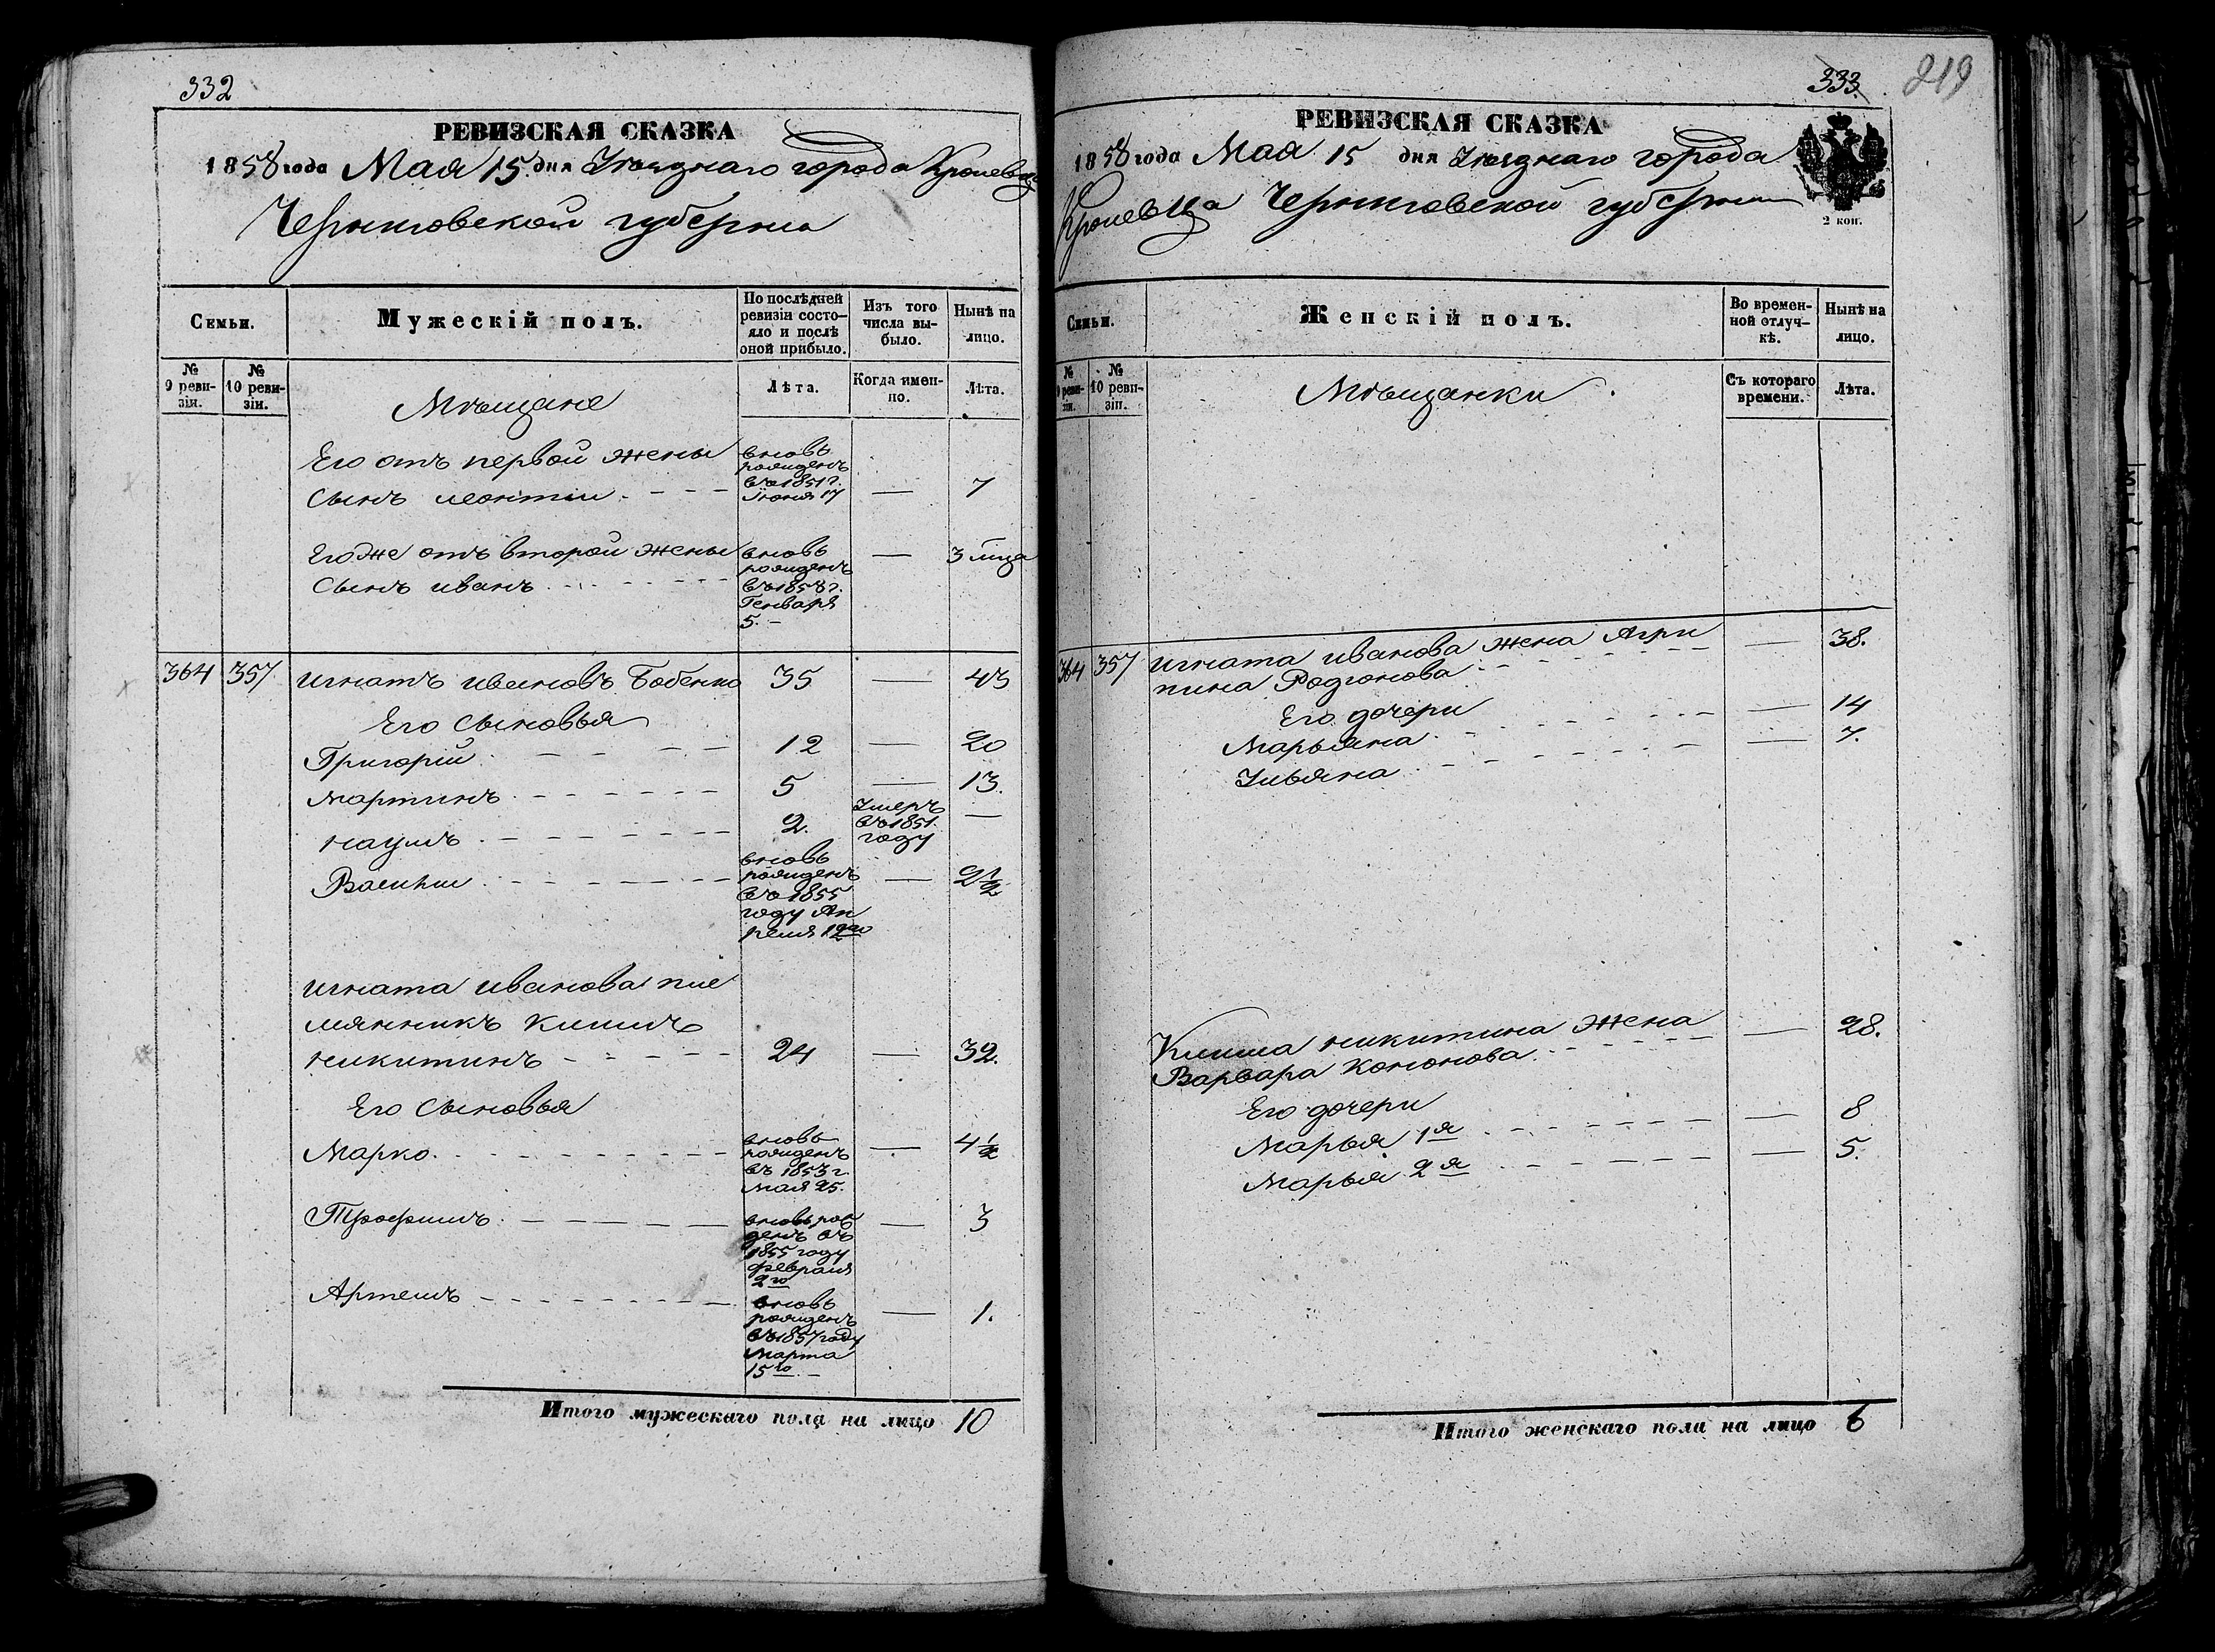 332
РЕВИЗСКАЯ СКАЗКА
1858 года Мая 15 дня Уѣзднаго города Кролевца
Черниговской губерніи
Семьи.
Мужескій полъ.
По послѣдней ревизіи состо-
яло и послѣ
оной прибыло.
Изъ того
числа вы-
было.
Нынѣ на
лицо.
№
9 реви-
зіи.
№
10 реви-
зіи.
Лѣта.
Когда имен-
но.
Лѣта.
Мѣщане
Его отъ первой жены
сынъ Леонтій
вновь
рожденъ
въ 1851 г.
Іюня 17
—
7
Его же отъ второй жены
сынъ Иванъ
вновь
рожденъ
въ 1858 г.
Генваря
5. –
—
3 мца
364 357 Игнатъ Ивановъ Бобенко 35 — 43
Его сыновья
Григорій 12 — 20
Мартинъ 5 — 13.
Наумъ 2.
Умеръ
въ 1851
году
—
Василій
вновь
рожденъ
въ 1855
году Ап
реля 12го
—
2 1/2
Игната Иванова пле
мянникъ Климъ
Никитинъ 24 — 32.
Его сыновья
Марко
вновь
рожденъ
въ 1853 г.
Мая 25.
—
4 1/2
Трофимъ
вновь рож
денъ въ
1855 году
февраля
2го
—
3
Артемъ
вновь
рожденъ
въ 1857 году
Марта
15го –
—
1.
Итого мужескаго пола на лицо 10
333.
219
РЕВИЗСКАЯ СКАЗКА
1858 года Мая 15 дня Уѣзднаго города
Кролевца Черниговской губерніи
2 коп.
Семьи.
Женскій полъ.
Во времен-
ной отлуч-
кѣ.
Нынѣ на
лицо.
№
9 реви-
зіи.
№
10 реви-
зіи.
Съ котораго
времени.
Лѣта.
Мѣщанки
364 357 Игната Иванова жена Агри — 38.
пина Родіонова
Его дочери
Марьяна — 14
Ульяна — 7.
Клима Никитина жена — 28.
Варвара Кононова
Его дочери
Марья 1я — 8
Марья 2я — 5.
Итого женскаго пола на лицо 6